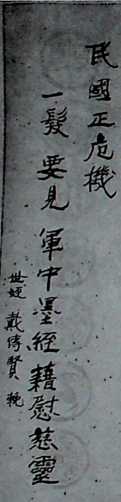 民國正危機
一髮要見軍中墨絰藉慰慈靈
世姪戴傳賢輓